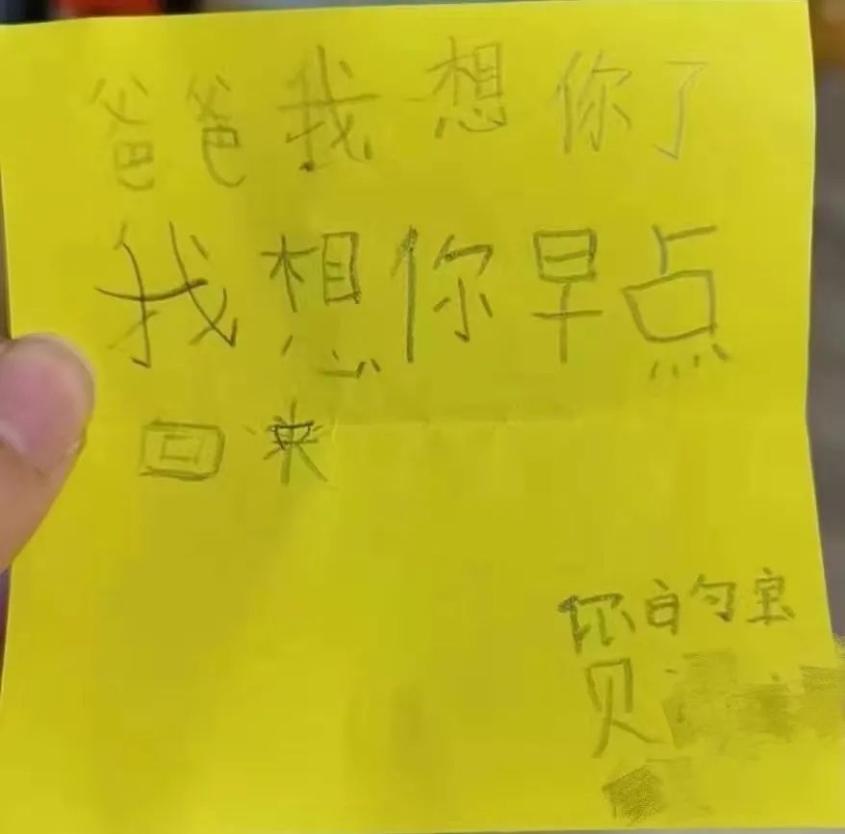 爸爸我想你了
我想你早点
回来
你的宝
贝